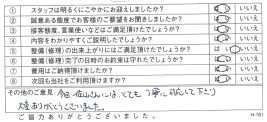 ① スタッフは明るくにこやかにお迎えしましたか? はい いいえ
② 誠意ある態度でお客様のご要望をお聞きしましたか? はい いいえ
③ 接客態度、言葉使いなどはご満足頂けたでしょうか? はい いいえ
④ 内容をわかりやすくご説明したでしょうか? はい いいえ
⑤ 整備(修理)の出来上がりにはご満足頂けたでしょうか? はい いいえ
⑥ 整備(修理)完了の日時のお約束は守れたでしょうか? はい いいえ
⑦ 費用はご納得頂けましたか? はい いいえ
⑧ 次回も当社をご利用頂けますか? はい いいえ
その他のご意見 今回、佐山さんには、とても丁寧に対応して下さり
大変ありがとうございました。
ご協力ありがとうございました。 H-161